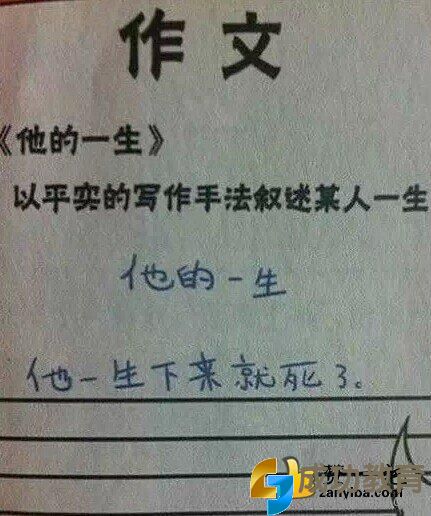 作文
《他的一生》
以平实的写作手法叙述某人一生
他的一生
他一生下来就死了。
成功教育
zanyiba.com